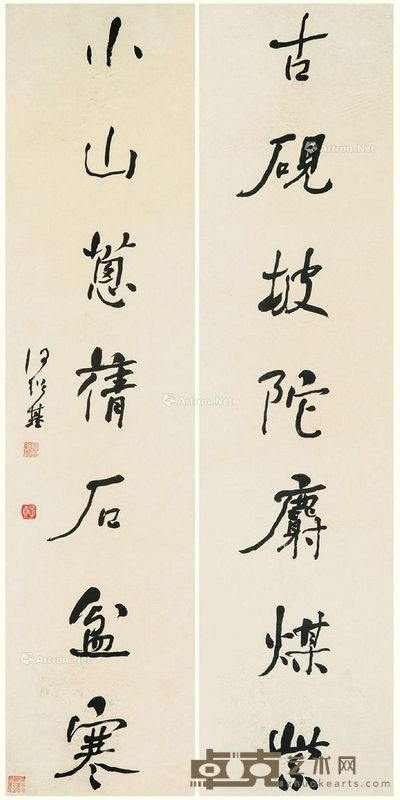 古硯坡陀麝煤紫
小山蔥蒨石盆寒
何紹基
Artron.Net
Artron.Net
Artron.Net
Artron.Net
Artron.Net
卓克艺术网
zhuokearts.com